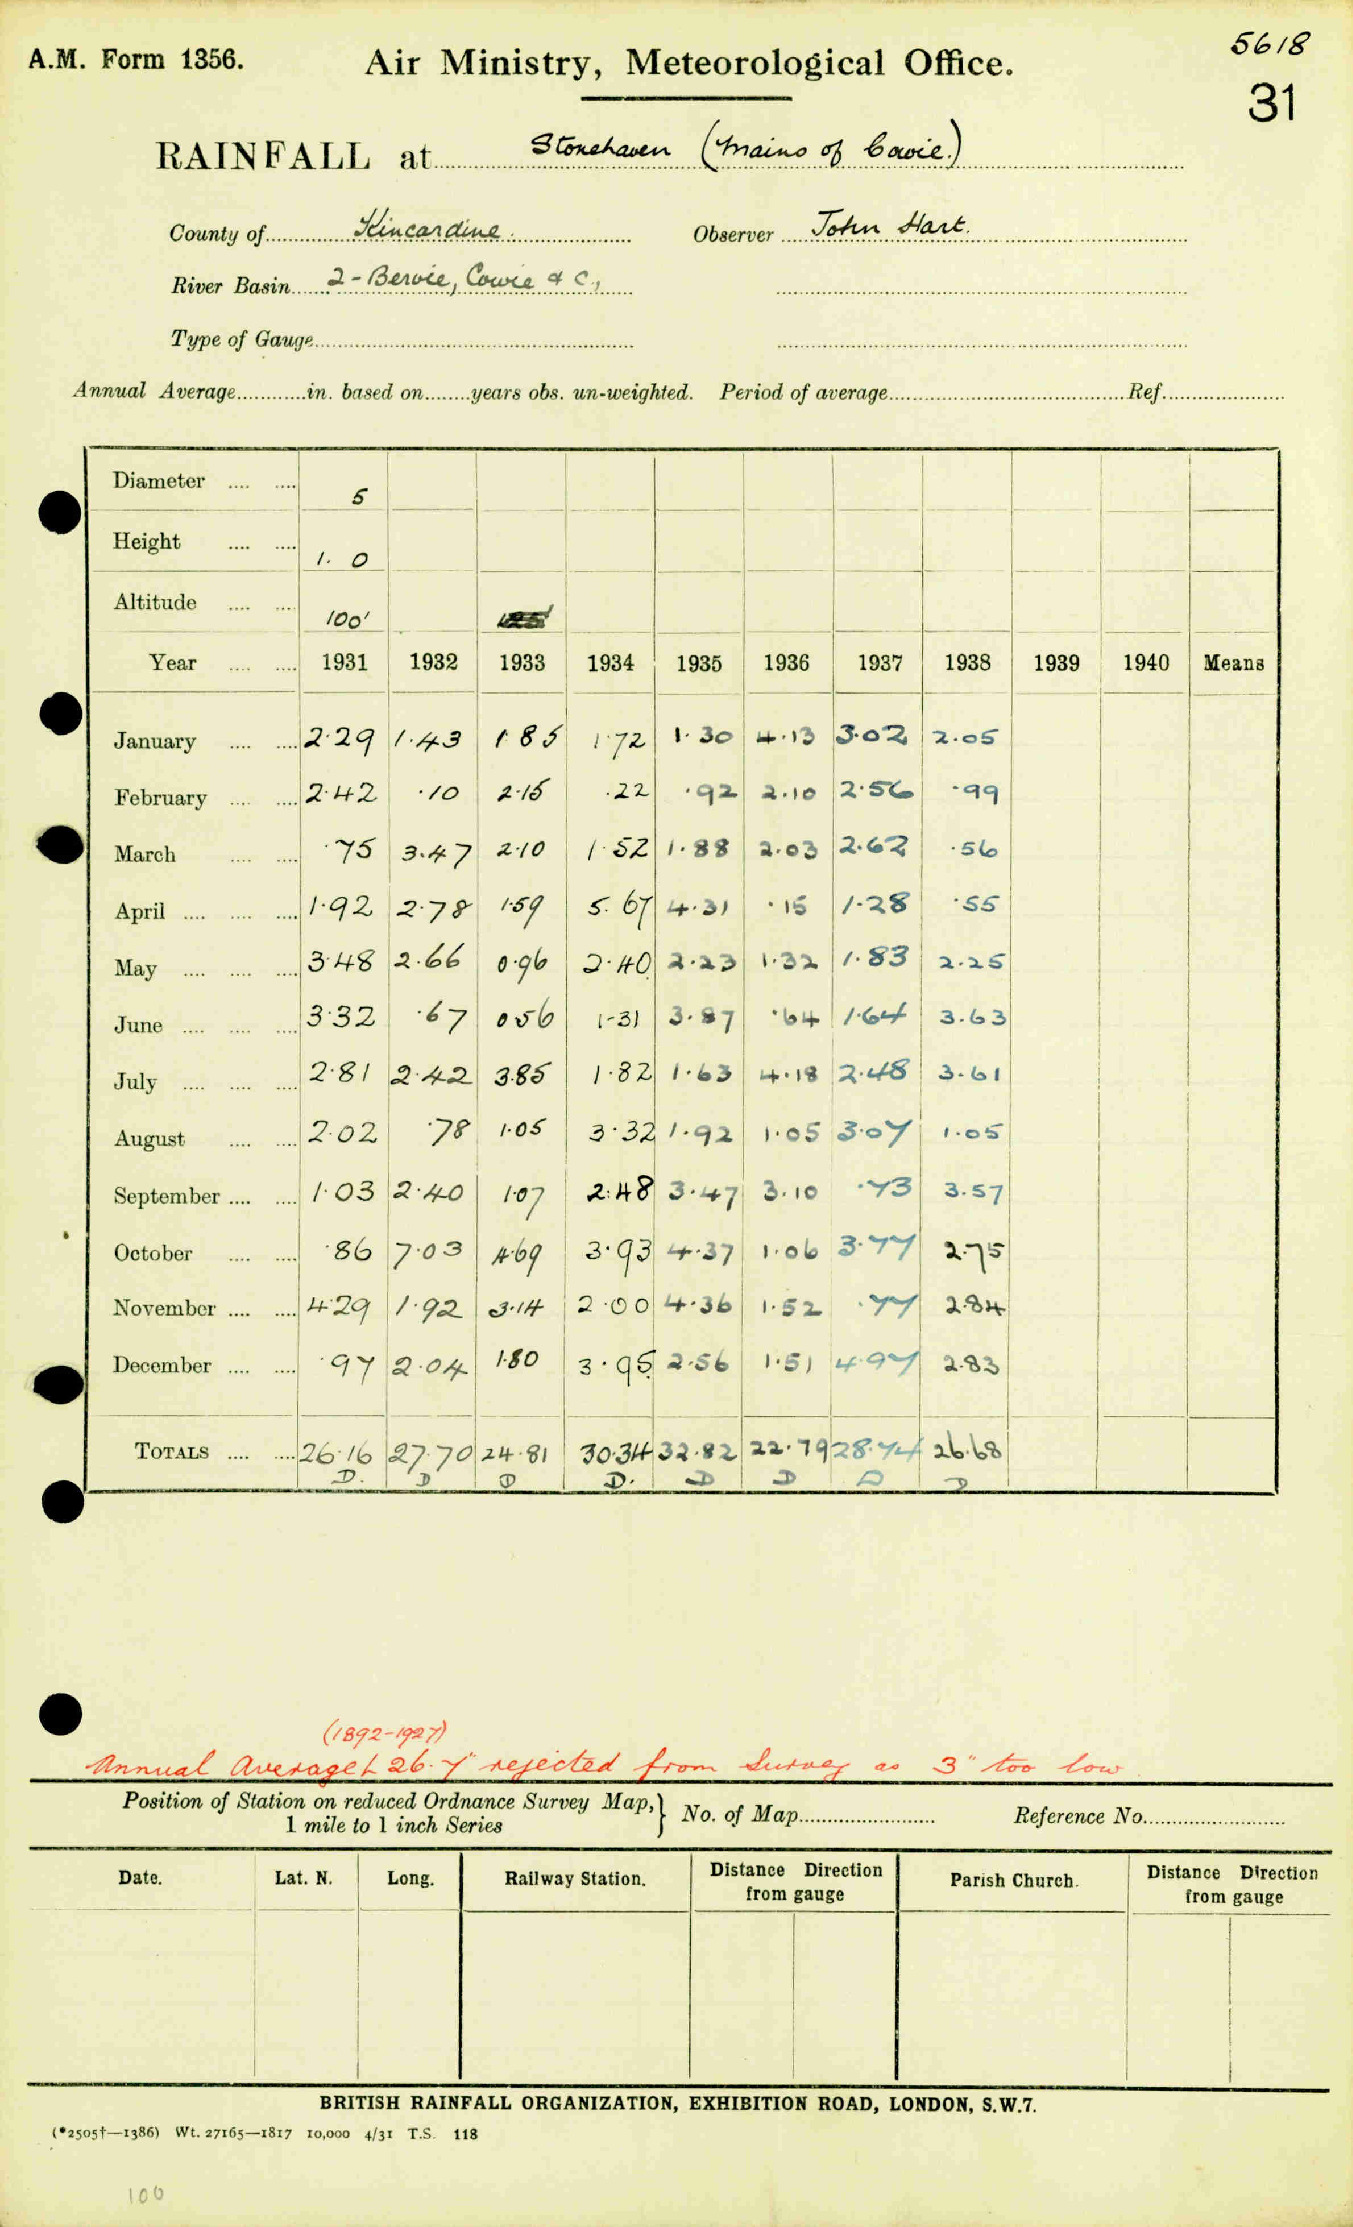 5618
A.M. Form 1356. Air Ministry, Meteorological Office.
31
RAINFALL at Stonehaven (Mains of Cowie.)
County of Kincardine. Observer John Hart.
River Basin 2 - Bervie, Cowie & C.,
Type of Gauge
Annual Average in. based on years obs. un-weighted. Period of average Ref.
Diameter 5
Height 1. 0
Altitude 100'
Year 1931 1932 1933 1934 1935 1936 1937 1938 1939 1940 Means
January 2.29 1.43 1.85 1.72 1.30 4.13 3.02 2.05
February 2.42 .10 2.15 .22 .92 2.10 2.56 .99
March .75 3.47 2.10 1.52 1.88 2.03 2.62 .56
April 1.92 2.78 1.59 5.67 4.31 .15 1.28 .55
May 3.48 2.66 0.96 2.40 2.23 1.32 1.83 2.25
June 3.32 .67 0.56 1.31 3.87 .64 1.64 3.63
July 2.81 2.42 3.85 1.82 1.63 4.18 2.48 3.61
August 2.02 .78 1.05 3.32 1.92 1.05 3.07 1.05
September 1.03 2.40 1.07 2.48 3.47 3.10 .73 3.57
October .86 7.03 4.69 3.93 4.37 1.06 3.77 2.75
November 4.29 1.92 3.14 2.00 4.36 1.52 .77 2.84
December .97 2.04 1.80 3.95 2.56 1.51 4.97 2.83
TOTALS 26.16 27.70 24.81 30.34 32.82 22.79 28.74 26.68
D. D D D. D D D D
(1892-1927)
Annual Average 26.7" rejected from Survey as 3" too low
Position of Station on reduced Ordnance Survey Map, 1 mile to 1 inch Series } No. of Map Reference No.
Date. Lat. N. Long. Railway Station. Distance Direction from gauge Parish Church. Distance Direction from gauge
BRITISH RAINFALL ORGANIZATION, EXHIBITION ROAD, LONDON, S.W.7.
(*2505†—1386) Wt. 27165—1817 10,000 4/31 T.S. 118
100